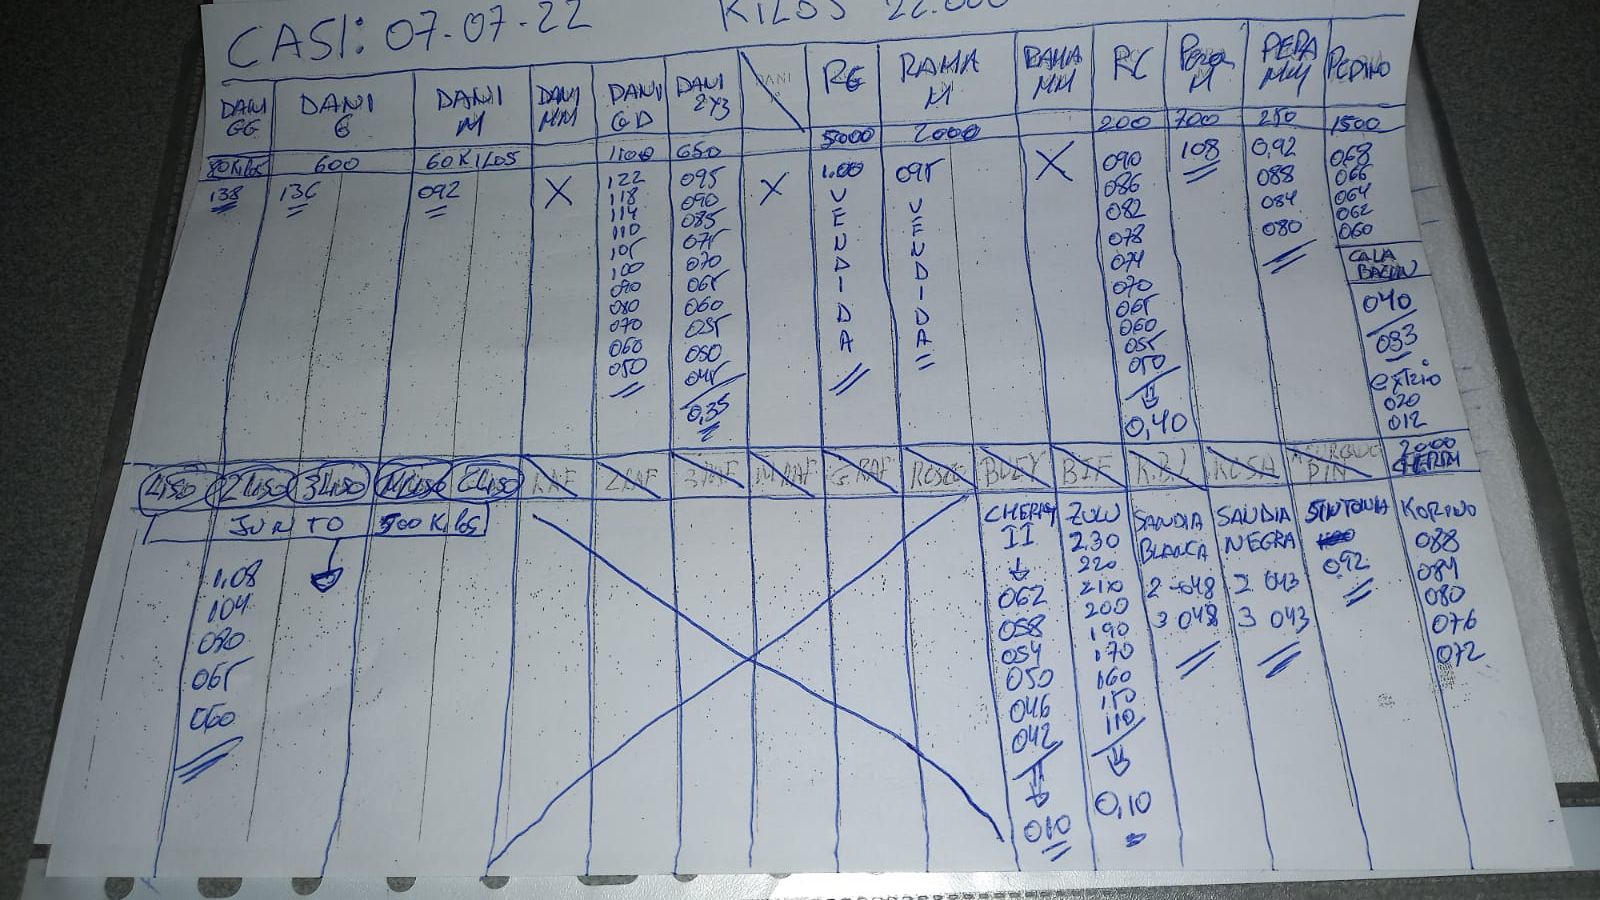 CASI: 07-07-22 KILOS 22.000
DANI GG
80 Kilos
138
DANI G
600
136
DANI M
60 KILOS
092
DANI MM
X
DANI GD
1100
122
118
114
110
105
100
090
080
070
060
050
DANI 2Y3
650
095
090
085
075
070
065
060
055
050
045
0,35
DANI
X
RG
5000
1.00
VENDIDA
RAMA M
2000
095
VENDIDA
RAMA MM
X
RC
200
090
086
082
078
074
070
065
060
055
050
0,40
Pera M
700
108
PERA MM
250
0,92
088
084
080
PEPINO
1500
068
066
064
062
060
CALABACIN
040
033
extrio
020
012
1 LISO 2 LISO 3 LISO M LISO G LISO
JUNTO 500 Kilos
1,08
104
090
065
060
1 RAF 2 RAF 3 RAF M RAF G RAF ROSCO BUEY BIF K.B.1 ROSA ASURCADO PIN
CHERRY II
062
058
054
050
046
042
010
ZULU
230
220
210
200
190
170
160
150
110
0,10
SANDIA BLANCA
2 - 048
3 048
SANDIA NEGRA
2 043
3 043
SINTONIA
092
2000
CHERIM
KORINO
088
084
080
076
072